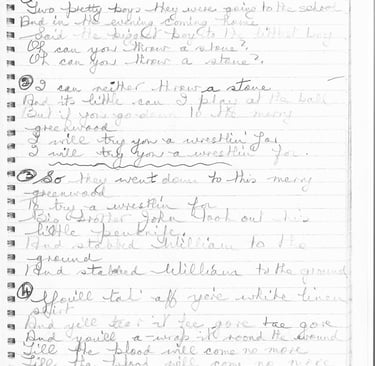 Two pretty boys they were going to the school
And in the evening coming home
Said the biggest boy to the littlest boy
Oh can you throw a stone?.
Oh can you throw a stone?.
② I can neither throw a stone
And its little can I play at the ball
But if you go down to the merry
greenwood
I will try you a wrestlin' for
I will try you a wrestlin' for.
③ So they went down to this merry
greenwood
To try a wrestlin for
Big brother John took out his
little penknife.
And stabbed William to the
ground
And stabbed William to the ground
④ You'll tak' aff yere white linen
shirt
And ye'll tear it fee gore tae gore
And you'll a-wrap it round the wound
Till the blood will come no more
Till the blood will come no more